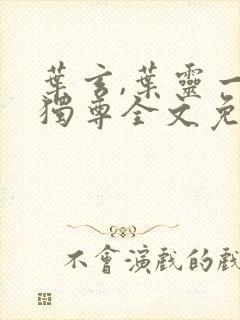 葉玄,葉靈一
獨尊全文免
不會演戲的戲